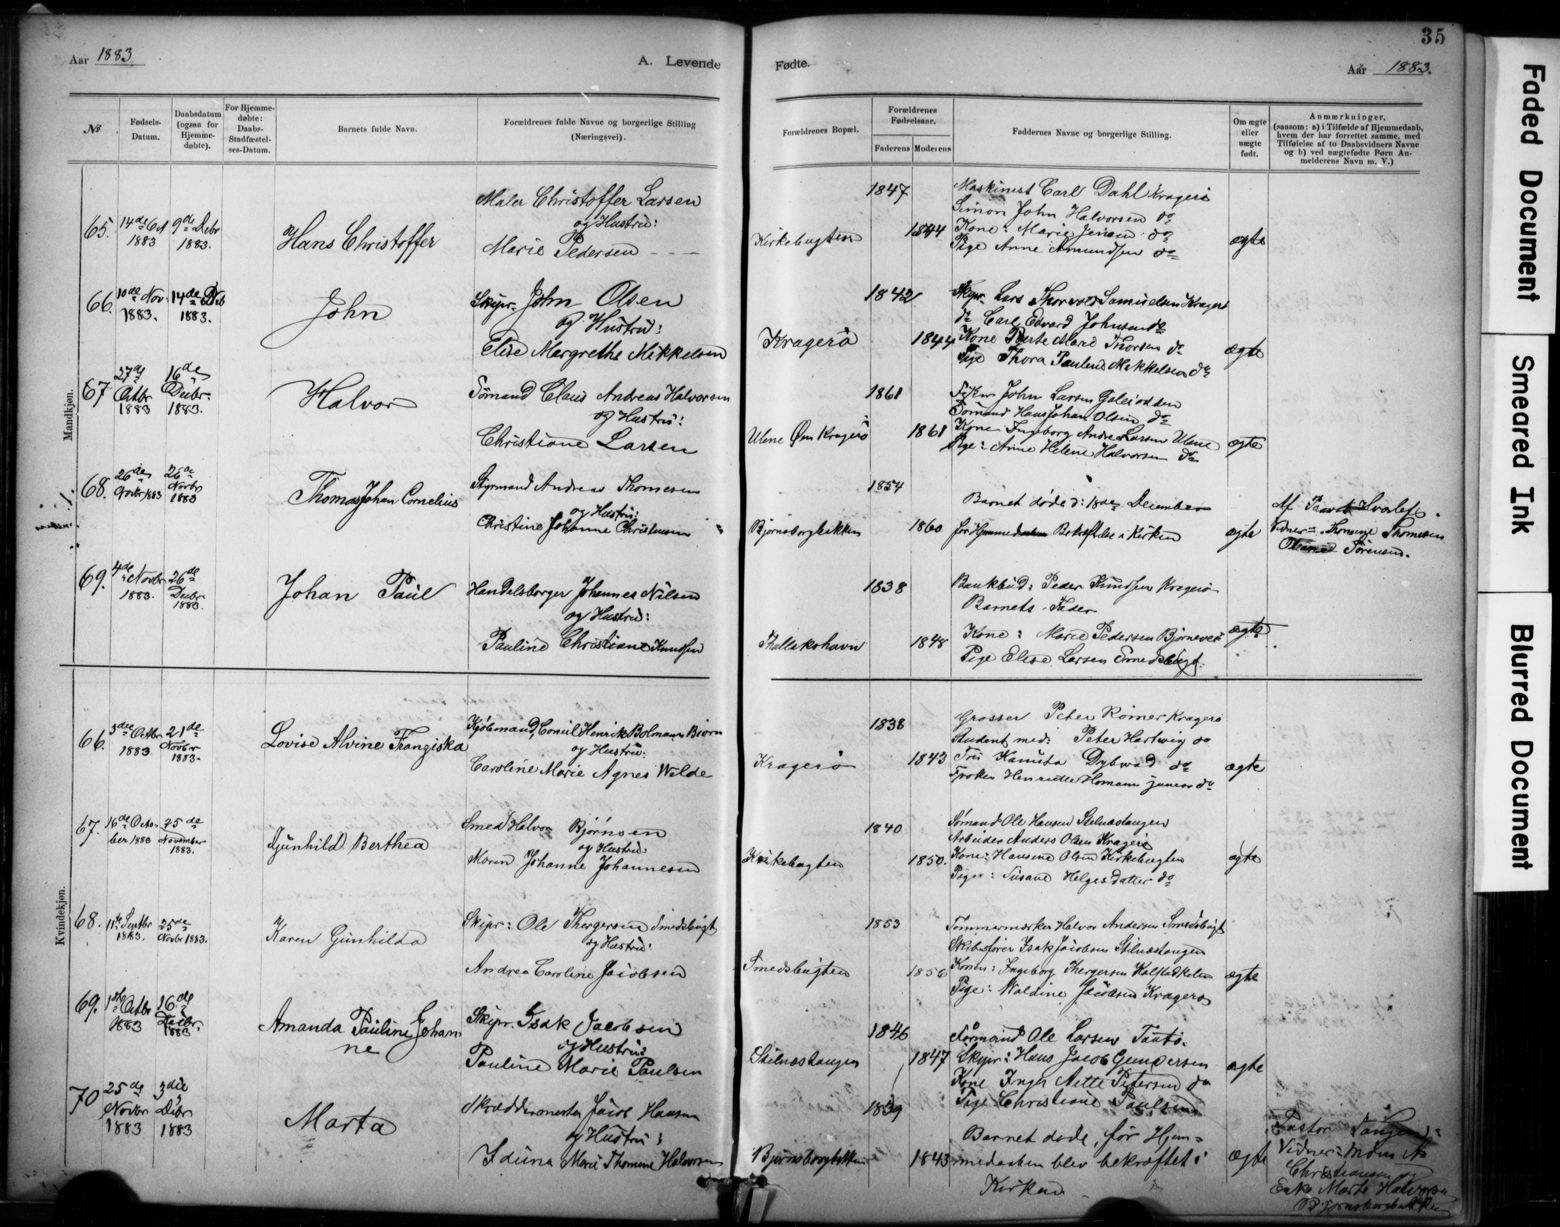 Aar 1883.
A. Levende
Fødte.
35
Aar 1883.
№
Fødsels-
Datum.
Daabsdatum
(ogsaa for
Hjemme-
døbte).
For Hjemme-
døbte:
Daabs-
Stadfæstel-
ses-Datum.
Barnets fulde Navn.
Forældrenes fulde Navne og borgerlige Stilling
(Næringsvei).
Forældrenes Bopæl.
Forældrenes
Fødselsaar.
Faderens
Moderens
Faddernes Navne og borgerlige Stilling.
Om ægte
eller
uægte
født.
Anmærkninger,
(saasom: a) i Tilfælde af Hjemmedaab,
hvem der har forrettet samme, med
Tilføielse af to Daabsvidners Navne
og b) ved uægtefødte Børn An-
melderens Navn m. V.)
Mandkjøn.
65.
14de Oct
1883
9de Debr
1883.
Hans Christoffer
Maler Christoffer Larsen
og Hustru:
Marie Pedersen
Kirkebugten
1847
1844
Maskinist Carl Dahl Kragerø
Simon John Halvorsen do
Kone: Marie Jensen do
Pige Anne Amundsen do
ægte
66.
10de Nov.
1883.
14de Deb
1883.
John
Skipr. John Olsen
og Hustru:
Elise Margrethe Mikkelsen
Kragerø
1842
1844
Skpr. Lars Samuelsen Kragerø
do Carl Edvard Johnsen do
Kone Marie Thorsen do
Pige Thora Pauline Mikkelsen do
ægte
67
27de
Octbr
1883
16de
Debr.
1883.
Halvor
Sømand Claus Andreas Halvorsen
og Hustru:
Christiane Larsen
Ulene Øen Kragerø
1861
1861
John Larsen
Sømand Hans Johan Olsen do
Kone Ingeborg Andrea Larsen Ulene
Pige: Anne Helene Halvorsen do
ægte
68.
26de
Novbr 1883
26de
Novbr
1883
Thomas Johan Cornelius
Styrmand Andreas Thomesen
og Hustru:
Christine Johanne Christensen
Bjørnsborgbakken
1854
1860
Barnet døde d: 18de December
før Hjemmedaaben i Kirken
ægte
Af
Thomesen
Sørensen.
69.
4de Novbr
1883.
26de
Debr
1883.
Johan Paul
Handelsborger Johannes Nilsen
og Hustru:
Pauline Christiane Knudsen
Kallakshavn
1838
1848
Bankbud: Peder Knudsen Kragerø
Barnets Fader
Kone: Marie Pedersen
Pige Elise Larsen Smedsbugt.
ægte
Kvindekjøn.
66.
3die Octbr
1883
21de
Novbr
1883.
Lovise Alvine Franziska
Kjøbmand, Henrik Bolmann Bjørn
og Hustru:
Caroline Marie Agnes Wilde
Kragerø
1838
1843
Grosser Peter Rømer Kragerø
Student med: Peter Hartwig do
Fru Kamilla Dybwad do
Frøken Henriette Homann junior do
ægte
67.
16de Octo-
ber 1883
25de
November
1883.
Gunhild Berthea
Smed Halvor Bjørnsen
og Hustru:
Maren Johanne Johannesen
Kirkebugten
1840
1850.
Sømand Ole Hansen Stilnestangen
Arbeider Anders Olsen Kragerø
Kone: Hansene Olsen Kirkebugten
Pige: Susane Helgesdatter do
ægte
68.
11te Septbr
1883.
25de
Novbr 1883.
Karen Gunhilda
Skipr: Ole Thorgersen Smedsbugt
og Hustru:
Andrea Caroline Jacobsen
Smedsbugten
1853
1856
Tømmermester Halvor Andersen Smedsbugt
Skibsfører Isak Jacobsen Stilnestangen
Konen: Ingeborg Thorgersen
Pige: Waldine Jacobsen Kragerø
ægte
69.
1ste Octbr
1883
16de
Debr.
1883
Amanda Pauline Johan
ne
Skipr. Isak Jacobsen
og Hustru:
Pauline Marie Paulsen
Stilnestangen
1846
1847
Sømand Ole Larsen
Skipr: Hans Jacob Gundersen
Kone Inger Aette Petersen do
Pige Christiane Paulsen
ægte
70
25de
Novbr
1883
3die
Debr
1883
Marta
Skræddermester Jacob Hansen
og Hustru:
Iduna Marie Thomine Halvorsen
Bjørnsborgbakken
1839
1843
Barnet døde, før Hjem-
medaaben blev bekræftet i
Kirken
ægte
Pastor Tangen:
Vidner:
Christiansen og
Enke Marte Halvorsen
Bjørnsborgbakken
Faded Document
Smeared Ink
Blurred Document